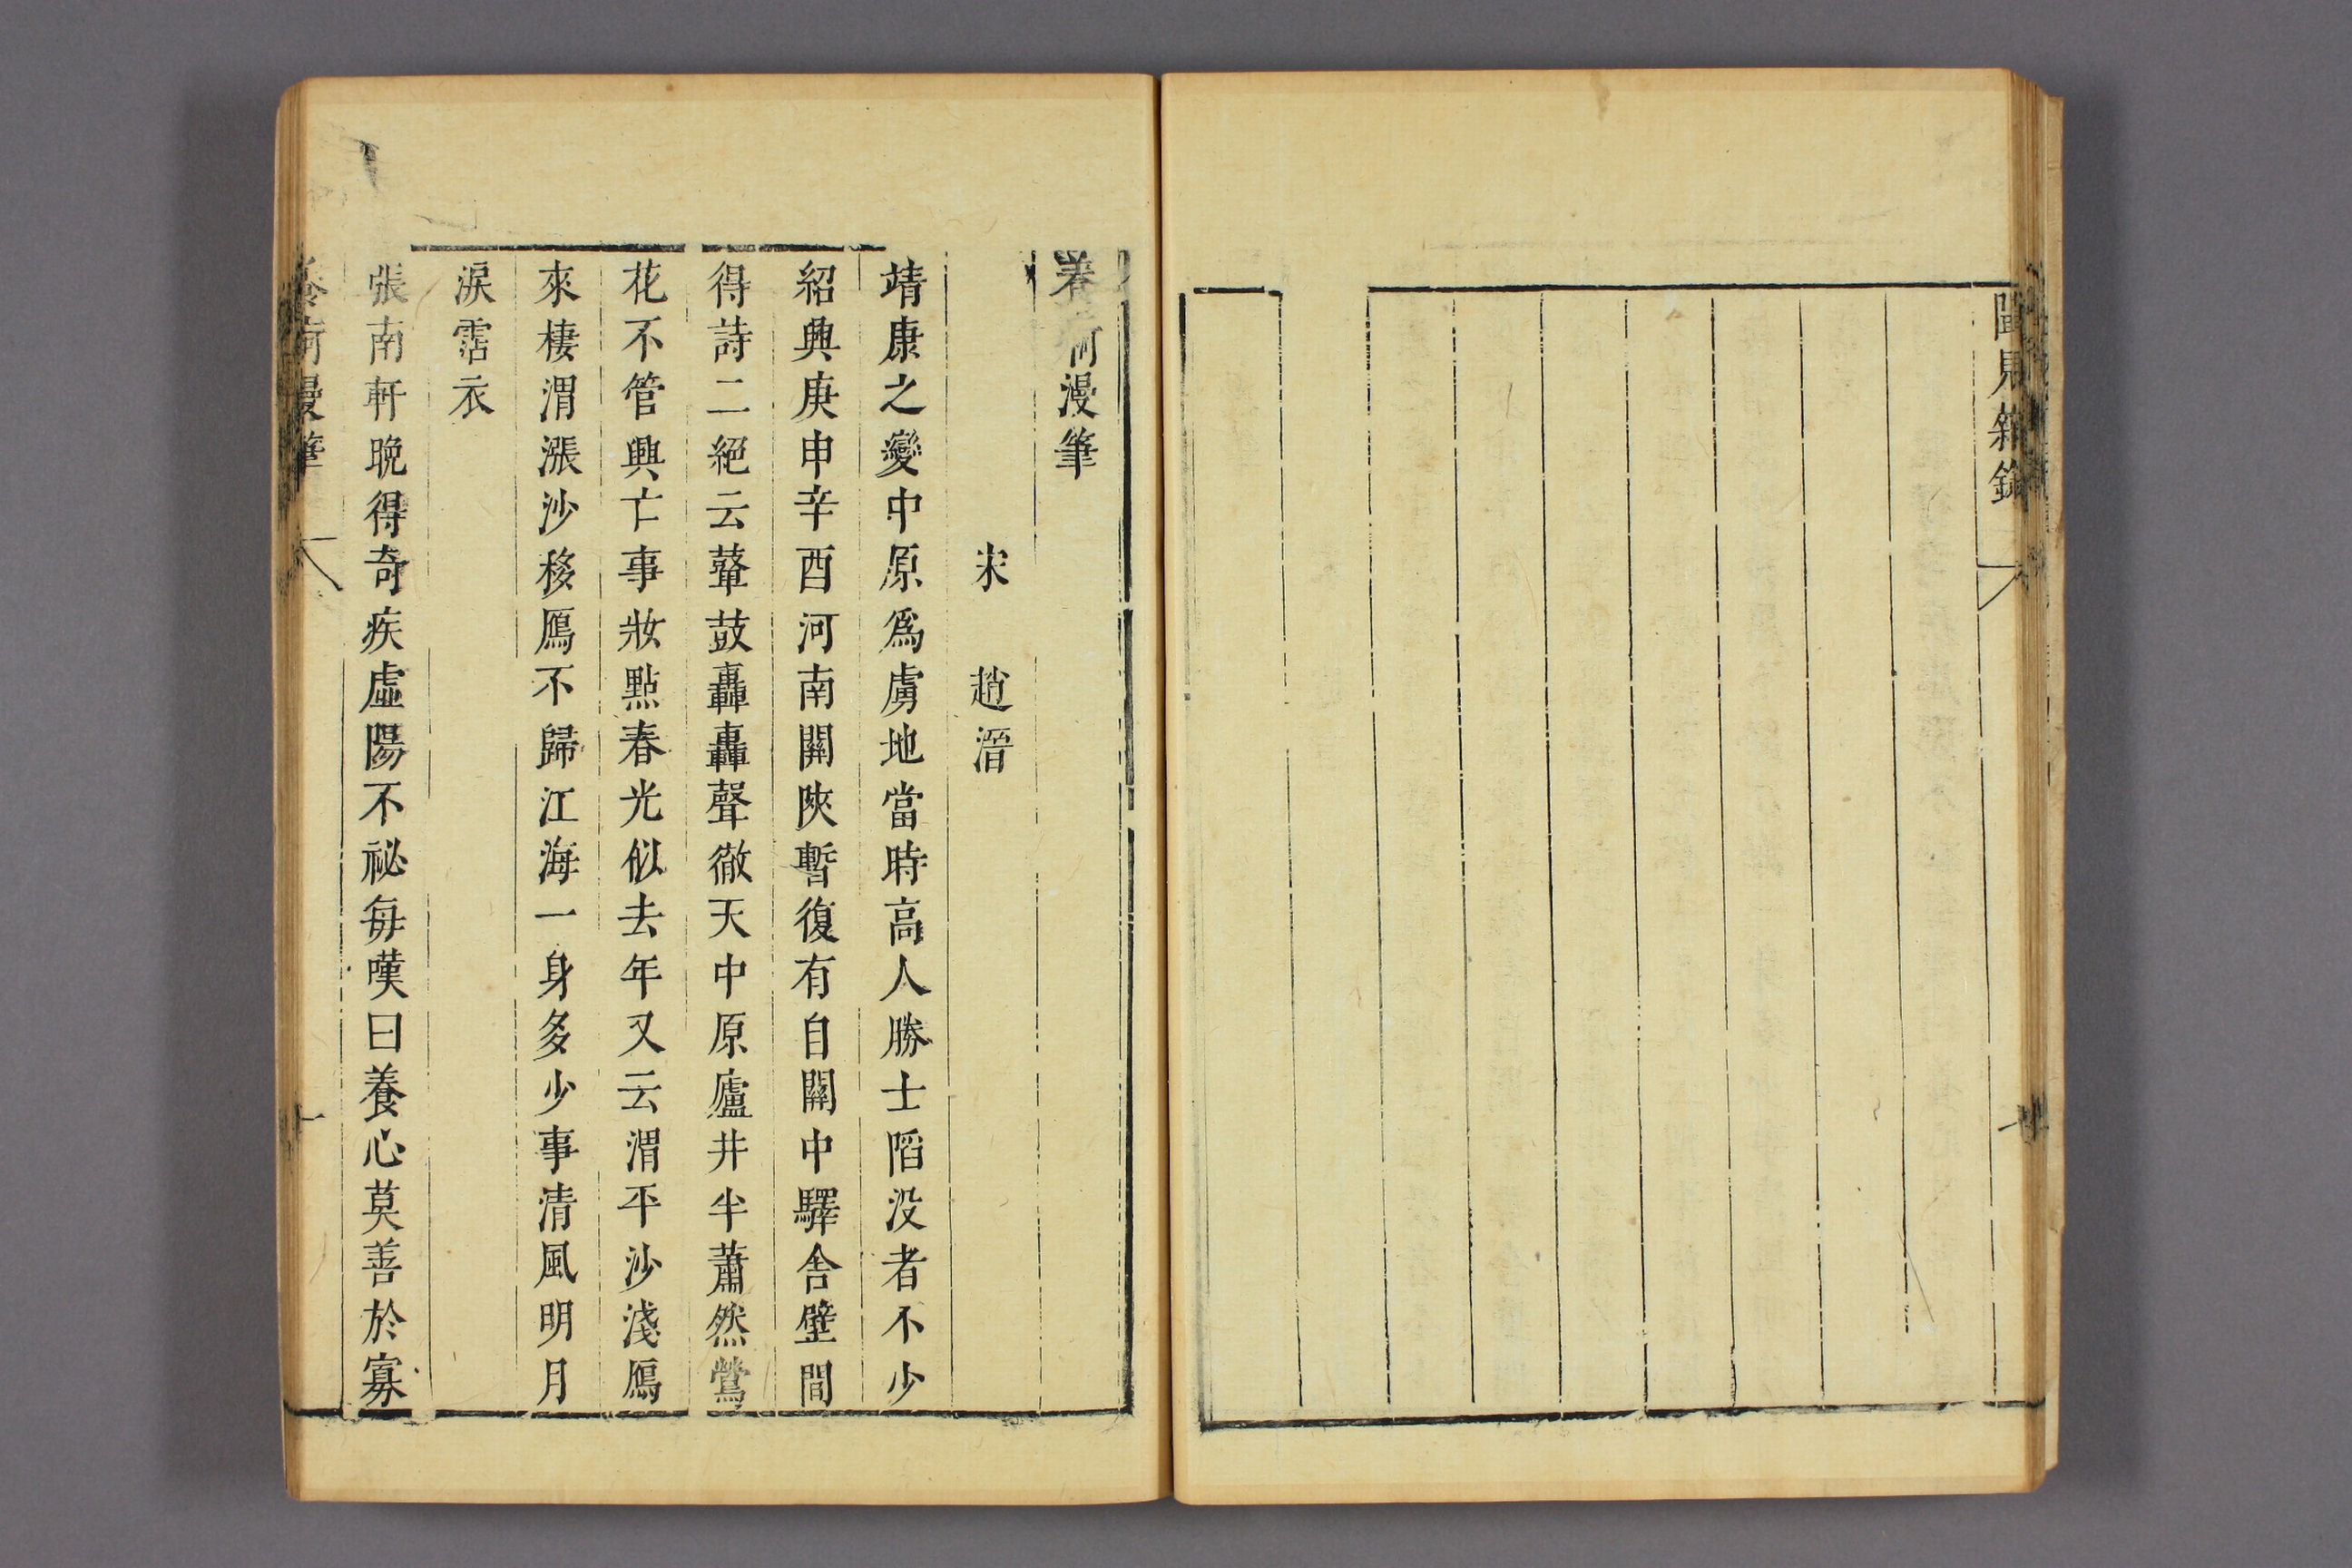 聞見雜錄
養疴漫筆
宋　趙溍
靖康之變中原爲虜地當時高人勝士陷没者不少
紹興庚申辛酉河南關陝暫復有自關中驛舍壁間
得詩二絕云鼙鼓轟轟聲徹天中原廬井半蕭然鶯
花不管興亡事妝點春光似去年又云渭平沙淺鴈
來棲渭漲沙移鴈不歸江海一身多少事清風明月
淚霑衣
張南軒晚得奇疾虛陽不祕每嘆曰養心莫善於寡
漫筆
一